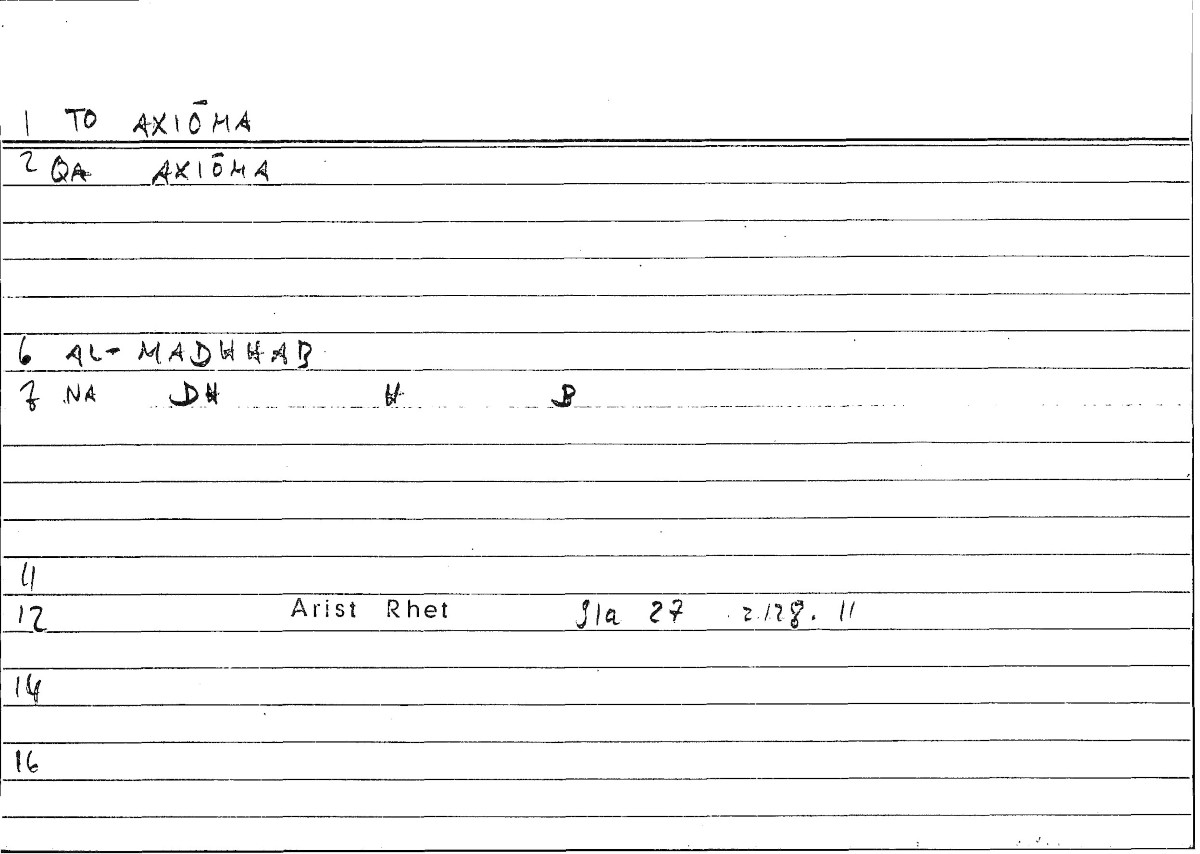 1 TO AXIŌMA
2 QA AXIŌMA
6 AL-MADHHAB
7 NA DH H B
11
12 Arist Rhet 91a 27 2.128. 11
14
16